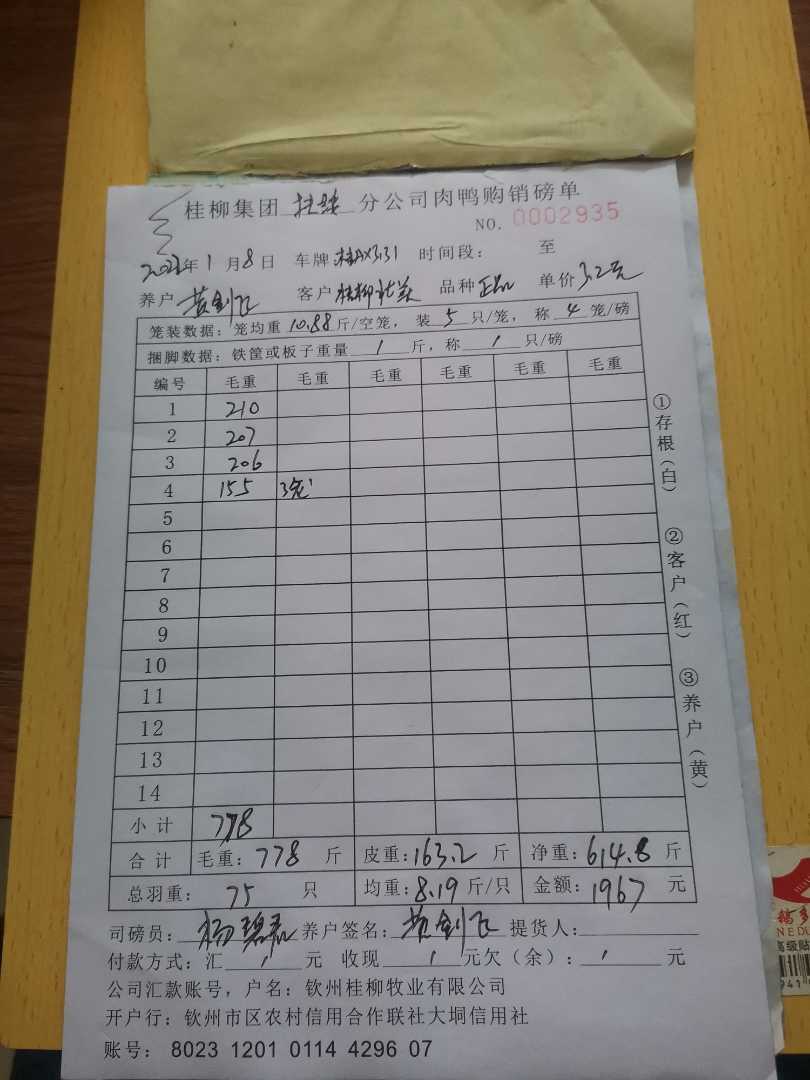 桂柳集团 分公司肉鸭购销磅单
NO. 0002935
年1月8日 车牌:桂AX3131 时间段: 至
养户 黄剑飞 客户 桂柳 品种 正品 单价 3.2元
笼装数据:笼均重10.88斤/空笼,装5只/笼,称4笼/磅
捆脚数据:铁筐或板子重量/斤,称/只/磅
编号 毛重 毛重 毛重 毛重 毛重 毛重
1 210
2 207
3 206
4 155 3笼
5
6
7
8
9
10
11
12
13
14
小计 778
合计 毛重:778斤 皮重:163.2斤 净重:614.8斤
总羽重:75只 均重:8.19斤/只 金额:1967元
司磅员:杨碧 养户签名:黄剑飞 提货人:
付款方式:汇/元 收现/元欠(余):/元
公司汇款账号,户名:钦州桂柳牧业有限公司
开户行:钦州市区农村信用合作联社大垌信用社
账号: 8023 1201 0114 4296 07
①存根(白) ②客户(红) ③养户(黄)
高级贴
941